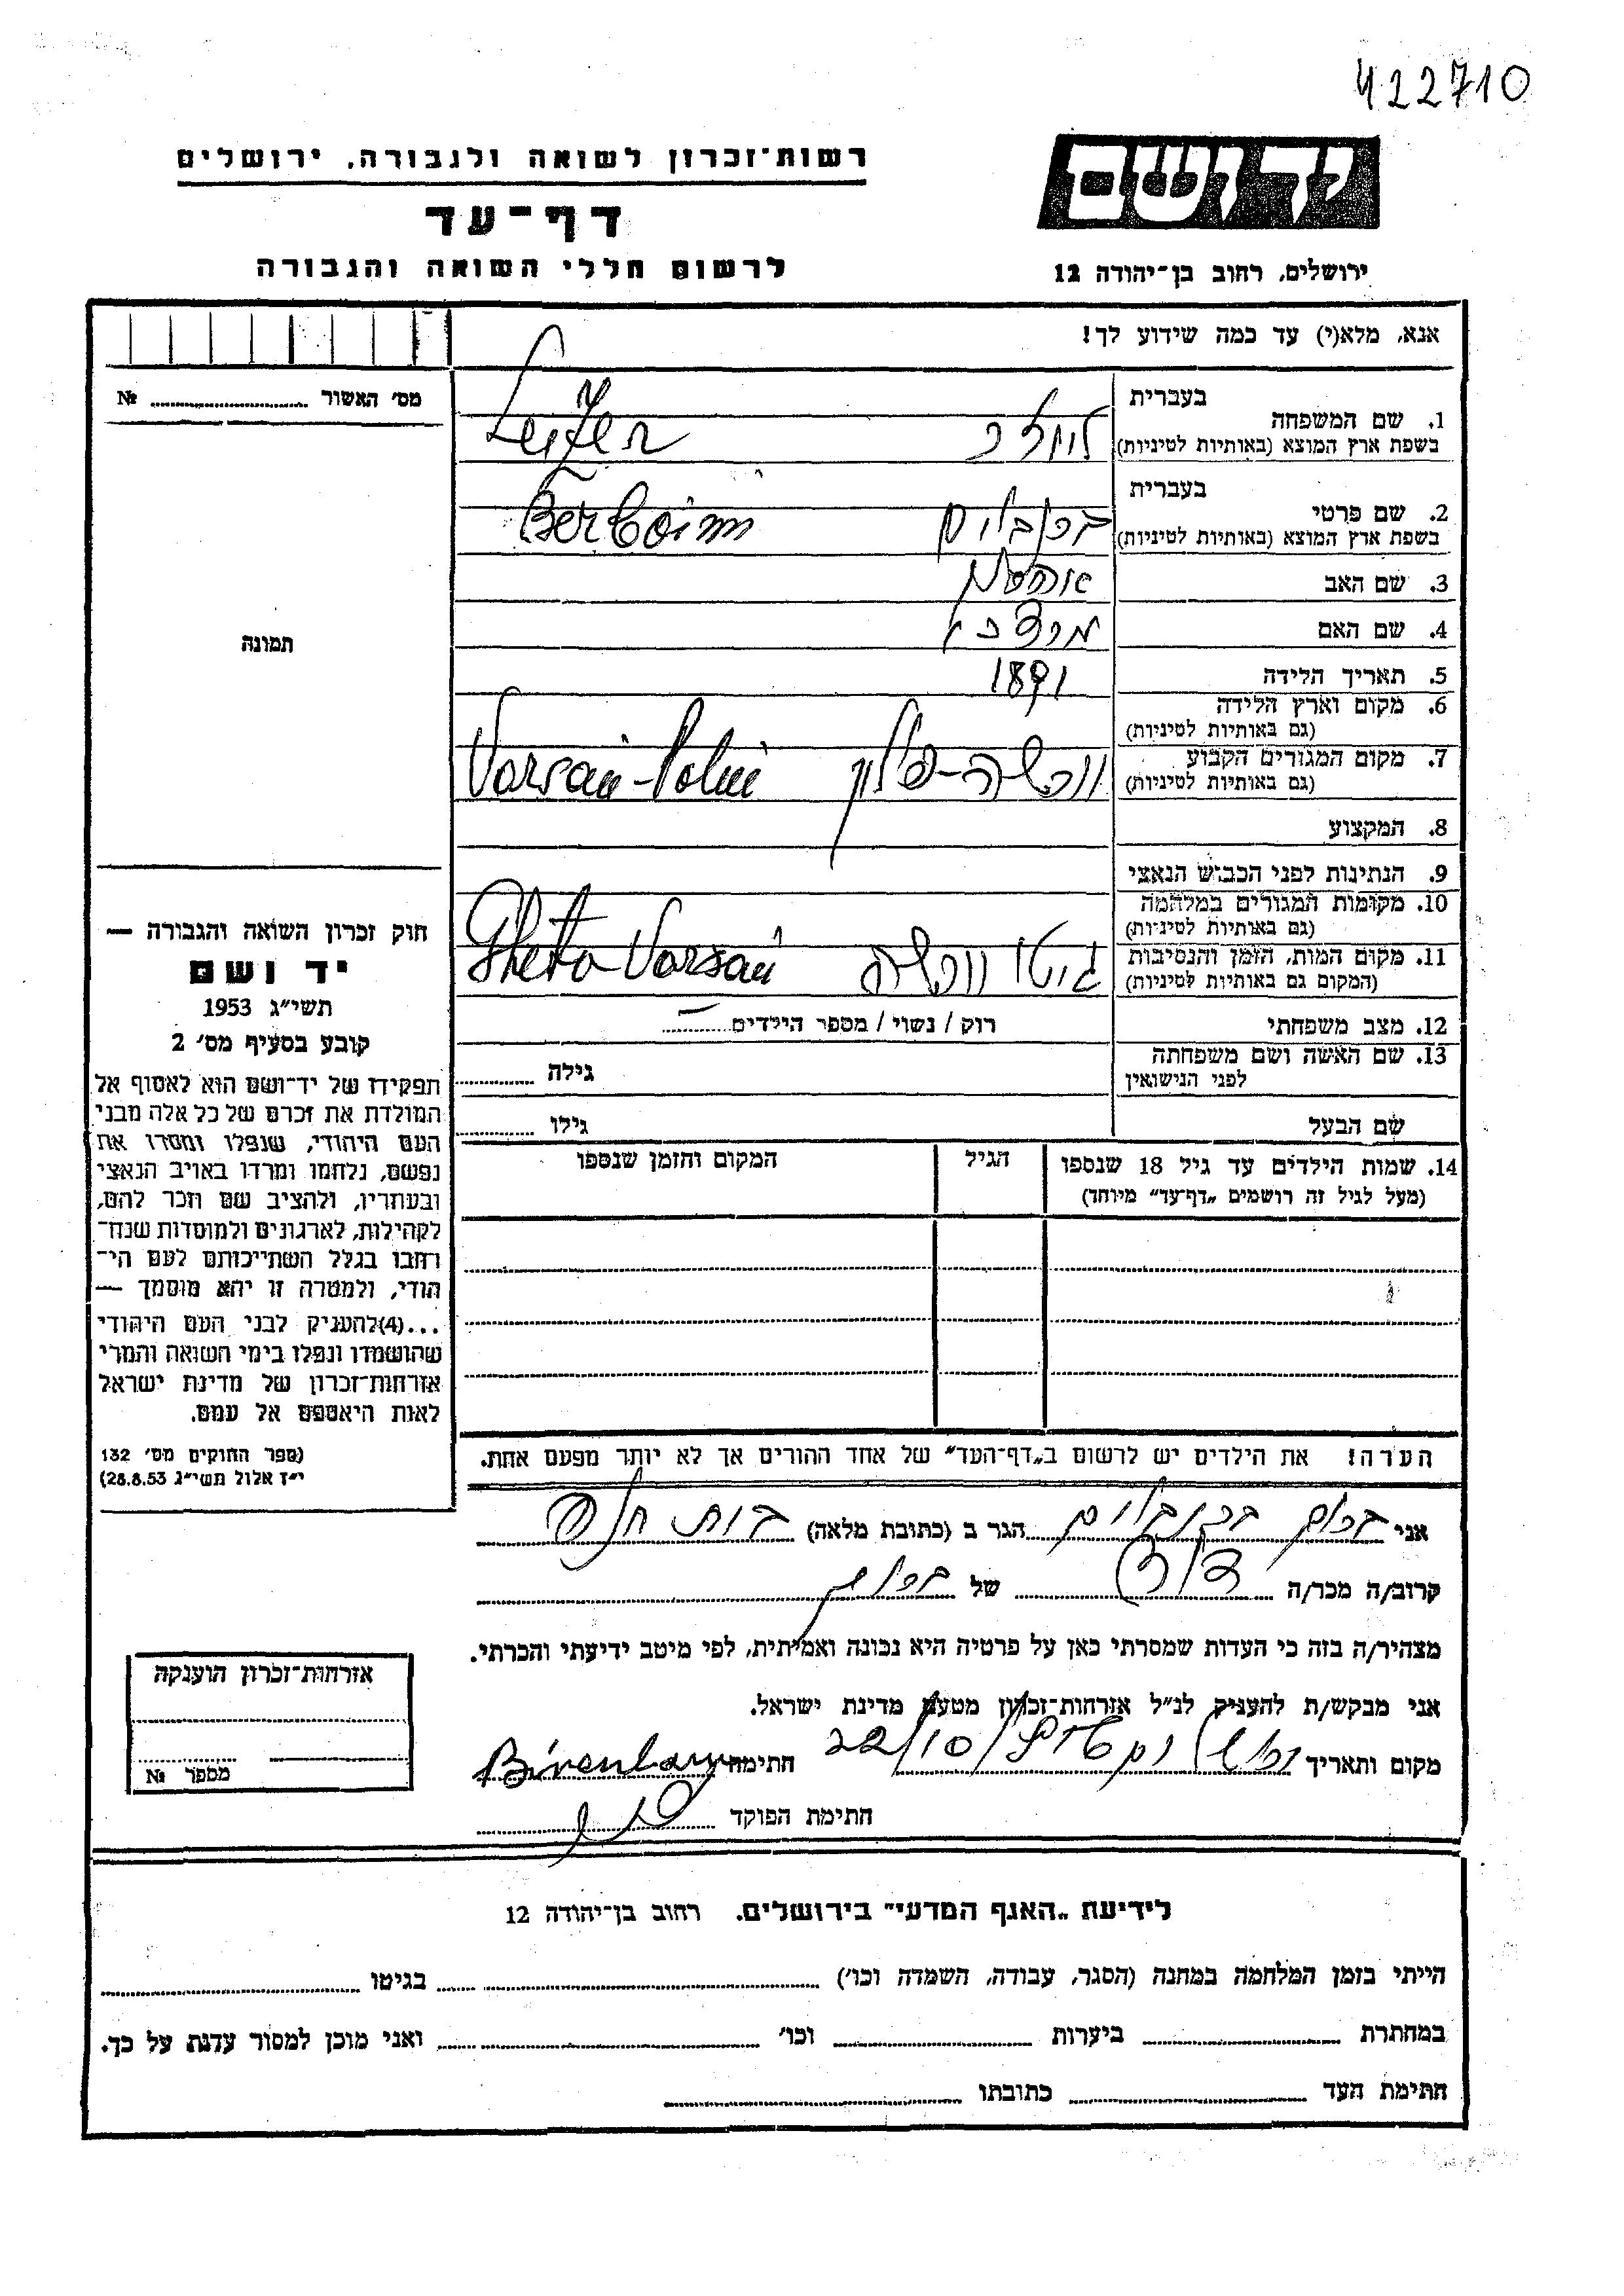 422710
רשות־זכרון לשואה ולגבורה. ירושלים
יד ושם
דף־עד
לרשום חללי השואה והגבורה
ירושלים, רחוב בן־יהודה 12
אנא, מלא(י) עד כמה שידוע לך!
מס׳ האשור № 
תמונה
חוק זכרון השואה והגבורה —
יד ושם
תשי״ג 1953
קובע בסעיף מס׳ 2
תפקידו של יד־ושם הוא לאסוף אל
המולדת את זכרם של כל אלה מבני
העם היהודי, שנפלו ומסרו את
נפשם, נלחמו ומרדו באויב הנאצי
ובעוזריו, ולהציב שם וזכר להם,
לקהילות, לארגונים ולמוסדות שנח־
רחבו בגלל השתייכותם לעם הי־
הודי, ולמטרה זו יהא מוסמך —
...(4)להעניק לבני העם היהודי
שהושמדו ונפלו בימי השואה והמרי
אזרחות־זכרון של מדינת ישראל
לאות היאספם אל עמם.
(ספר החוקים מס׳ 132
י״ז אלול תשי״ג 28.8.53)
בעברית
1. שם המשפחה
בשפת ארץ המוצא (באותיות לטיניות) Leizer
בעברית
2. שם פרטי
בשפת ארץ המוצא (באותיות לטיניות)
3. שם האב
4. שם האם
5. תאריך הלידה 1891
6. מקום וארץ הלידה
(גם באותיות לטיניות)
7. מקום המגורים הקבוע
(גם באותיות לטיניות) וורשה-פולין
8. המקצוע
9. הנתינות לפני הכבוש הנאצי
10. מקומות המגורים במלחמה
(גם באותיות לטיניות)
11. מקום המות, הזמן והנסיבות
(המקום גם באותיות לטיניות) גיטו וורשה Gheto Varsaú
12. מצב משפחתי רוק / נשוי / מספר הילדים
13. שם האשה ושם משפחתה
לפני הנישואין גילה
שם הבעל גילו
14. שמות הילדים עד גיל 18 שנספו הגיל המקום והזמן שנספו
(מעל לגיל זה רושמים „דף־עד״ מיוחד)
הערה! את הילדים יש לרשום ב„דף־העד״ של אחד ההורים אך לא יותר מפעם אחת.
אני הגר ב (כתובת מלאה)
קרוב/ה מכר/ה דוד של
מצהיר/ה בזה כי העדות שמסרתי כאן על פרטיה היא נכונה ואמיתית, לפי מיטב ידיעתי והכרתי.
אני מבקש/ת להעניק לנ״ל אזרחות־זכרון מטעם מדינת ישראל.
מקום ותאריך 22/10 חתימה
חתימת הפוקד
אזרחות־זכרון הוענקה
מספר №
לידיעת „האגף המדעי״ בירושלים. רחוב בן־יהודה 12
הייתי בזמן המלחמה במחנה (הסגר, עבודה, השמדה וכו׳) בגיטו
במחתרת ביערות וכו׳ ואני מוכן למסור עדות על כך.
חתימת העד כתובתו